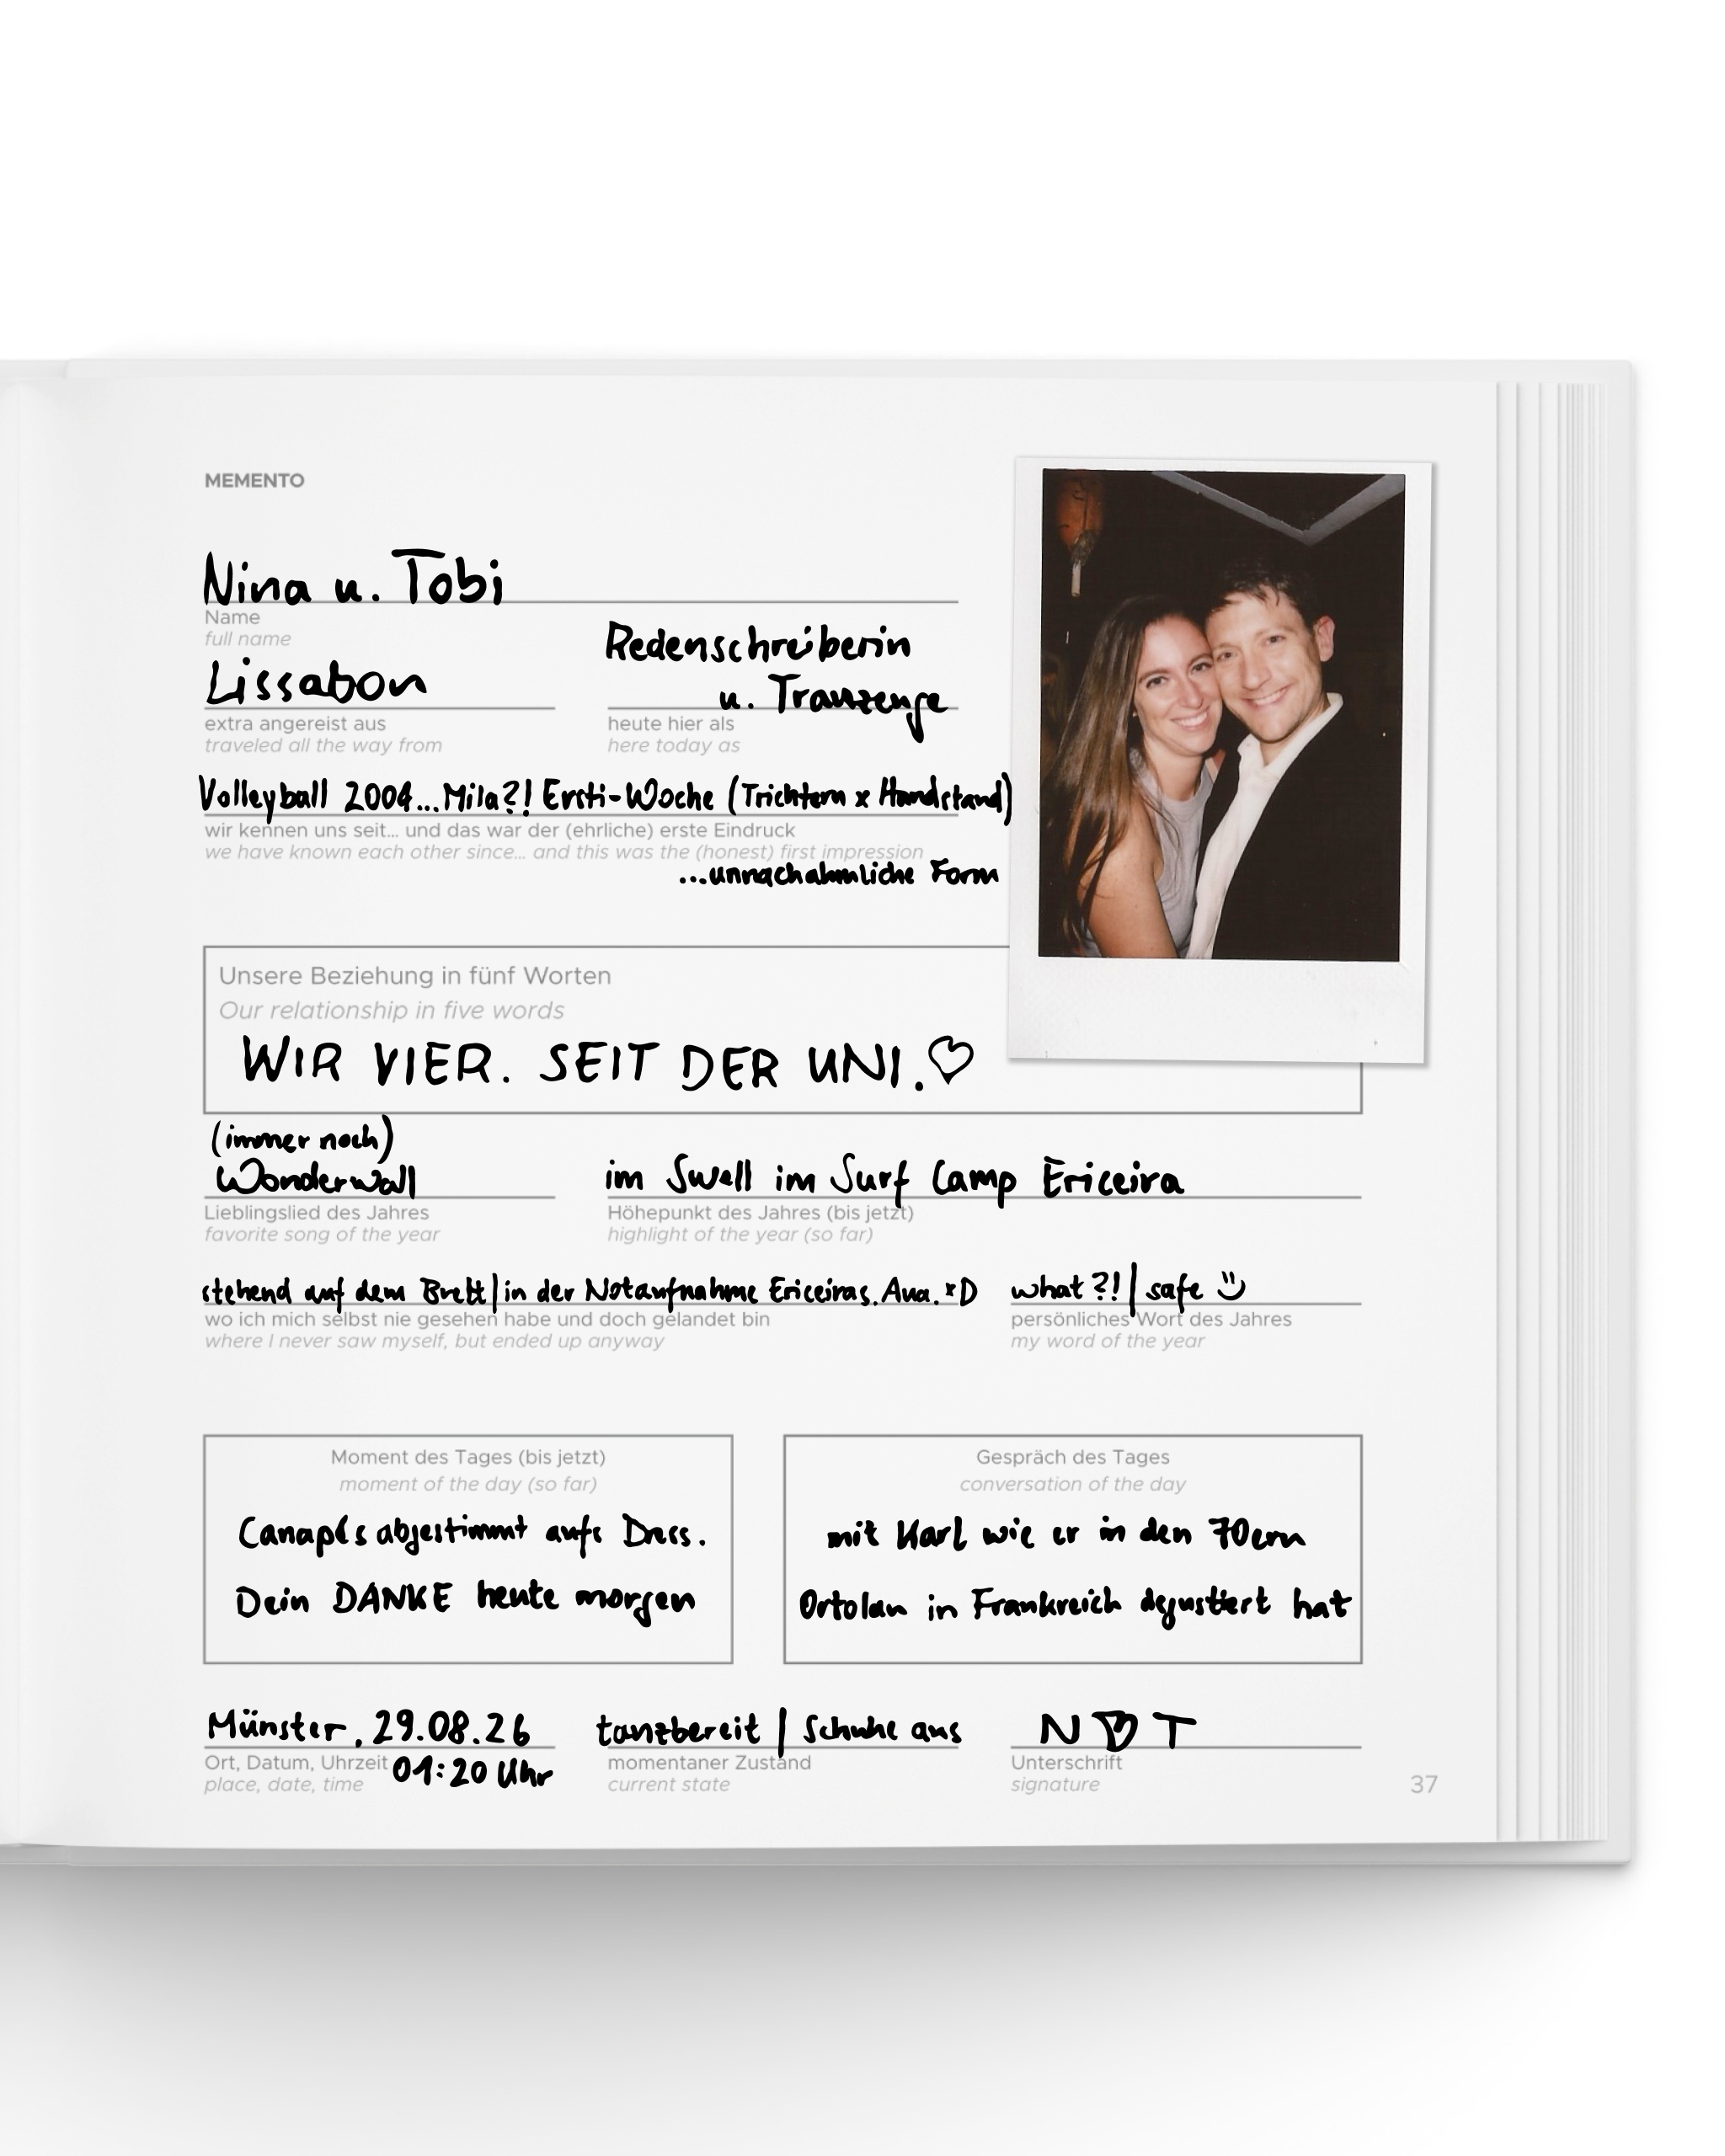 MEMENTO
Nina u. Tobi
Name
full name
Lissabon
extra angereist aus
traveled all the way from
Redenschreiberin
u. Trauzeuge
heute hier als
here today as
Volleyball 2004...Mila?! Ersti-Woche (Trichtern x Handstand)
wir kennen uns seit... und das war der (ehrliche) erste Eindruck
we have known each other since... and this was the (honest) first impression
...unnachahmliche Form
Unsere Beziehung in fünf Worten
Our relationship in five words
WIR VIER. SEIT DER UNI.♡
(immer noch)
Wonderwall
Lieblingslied des Jahres
favorite song of the year
im Swell im Surf Camp Ericeira
Höhepunkt des Jahres (bis jetzt)
highlight of the year (so far)
stehend auf dem Brett|in der Notaufnahme Ericeiras. Aua. xD
wo ich mich selbst nie gesehen habe und doch gelandet bin
where I never saw myself, but ended up anyway
what?!|safe
persönliches Wort des Jahres
my word of the year
Moment des Tages (bis jetzt)
moment of the day (so far)
Canapés abgestimmt aufs Dress.
Dein DANKE heute morgen
Gespräch des Tages
conversation of the day
mit Karl wie er in den 70ern
Ortolan in Frankreich degustiert hat
Münster, 29.08.26
Ort, Datum, Uhrzeit 01:20 Uhr
place, date, time
tanzbereit | Schuhe aus
momentaner Zustand
current state
N ♡ T
Unterschrift
signature
37